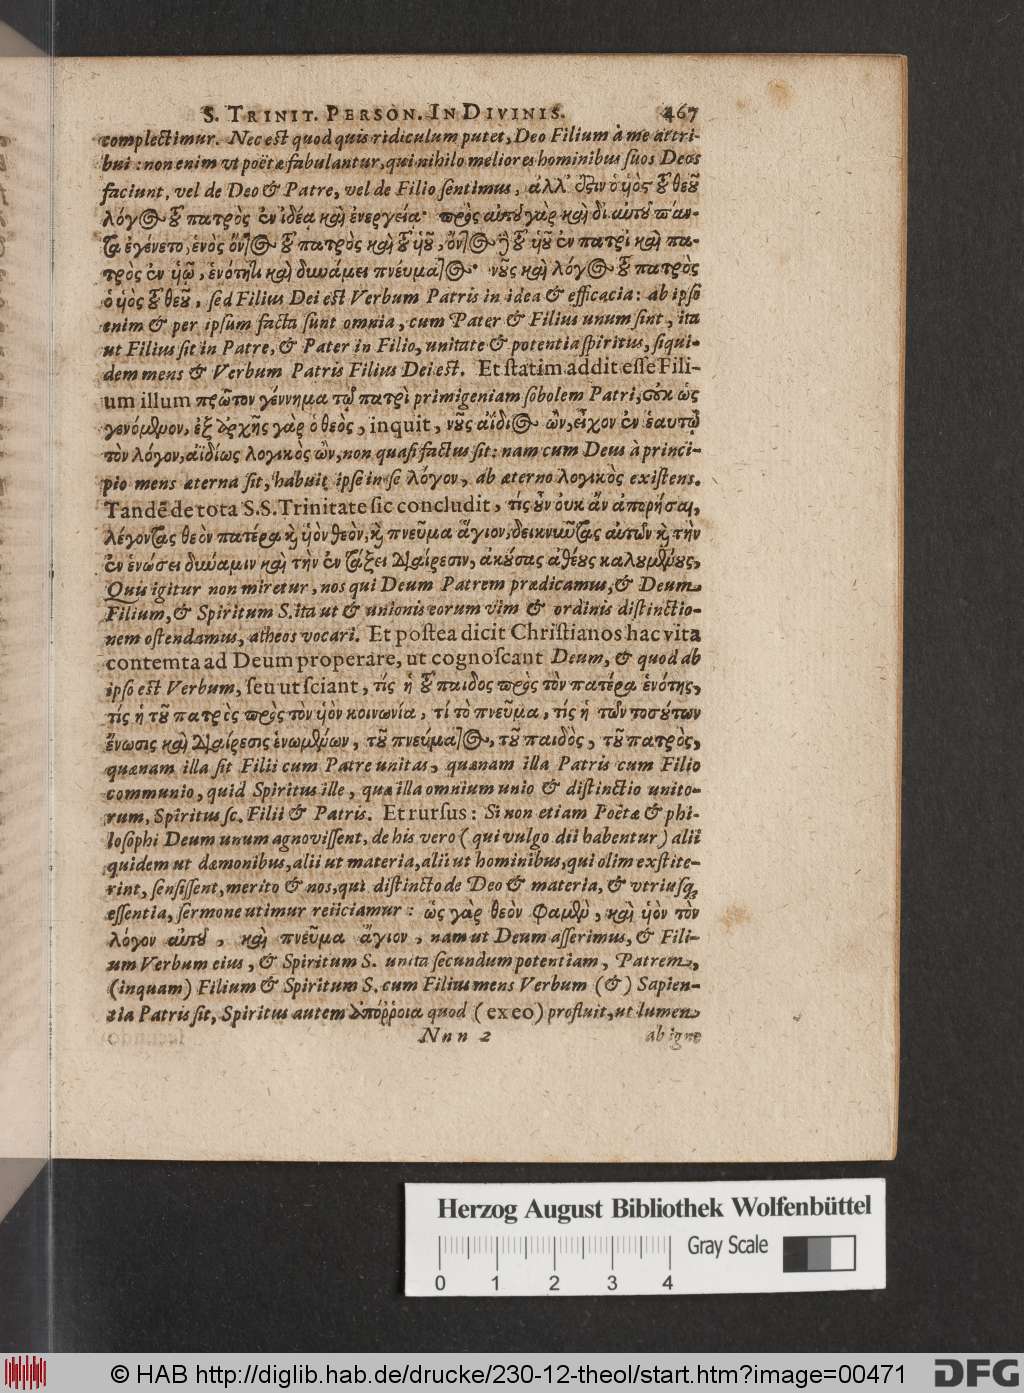 S. TRINIT. PERSON. IN DIVINIS. 467
complectimur. Nec est quod quis ridiculum putet, Deo Filium à me attri-
bui: non enim ut poëtæ fabulantur, qui nihilo meliores hominibus suos Deos
faciunt, vel de Deo & Patre, vel de Filio sentimus, ἀλλ’ ὅςιν ὁ ὑὸς τοῦ θεοῦ
λόγος τοῦ πατρὸς ἐν ἰδέᾳ καὶ ἐνεργείᾳ· πρὸς αὐτοῦ γὰρ καὶ δι αὐτοῦ πάν-
τα ἐγένετο, ἑνὸς ὄντος τοῦ πατρὸς καὶ τοῦ ὑοῦ, ὄντος ἢ τοῦ ὑοῦ ἐν πατρὶ καὶ πα-
τρὸς ἐν ὑῷ, ἑνότητι καὶ δυνάμει πνεύματος· νοῦς καὶ λόγος τοῦ πατρὸς
ὁ ὑὸς τοῦ θεοῦ, sed Filius Dei est Verbum Patris in idea & efficacia: ab ipso
enim & per ipsum facta sunt omnia, cum Pater & Filius unum sint, ita
ut Filius sit in Patre, & Pater in Filio, unitate & potentia spiritus, siqui-
dem mens & Verbum Patris Filius Dei est. Et statim addit esse Fili-
um illum πρῶτον γέννημα τῷ πατρὶ primigeniam sobolem Patri, οὐκ ὡς
γενόμενον, ἐξ ἀρχῆς γὰρ ὁ θεὸς, inquit, νοῦς αἴδιος ὢν, εἶχον ἐν ἑαυτῷ
τὸν λόγον, αἰδίως λογικὸς ὢν, non quasi factus sit: nam cum Deus à princi-
pio mens æterna sit, habuit ipse in se λόγον, ab æterno λογικὸς existens.
Tandē de tota S.S. Trinitate sic concludit, τίς οὖν οὐκ ἂν ἀπορήσαι,
λέγοντας θεὸν πατέρα καὶ ὑὸν θεὸν, καὶ πνεῦμα ἅγιον, δεικνυῦτας αὐτῶν καὶ τὴν
ἐν ἑνώσει δυνάμιν καὶ τὴν ἐν τάξει διαίρεσιν, ἀκούσας ἀθέους καλουμένους,
Quis igitur non miretur, nos qui Deum Patrem prædicamus, & Deum
Filium, & Spiritum S. ita ut & unionis eorum vim & ordinis distinctio-
nem ostendamus, atheos vocari. Et postea dicit Christianos hac vita
contemta ad Deum properare, ut cognoscant Deum, & quod ab
ipso est Verbum, seu ut sciant, τίς ἡ τοῦ παιδος πρὸς τὸν πατέρα ἑνότης,
τίς ἡ τοῦ πατρὸς πρὸς τὸν ὑὸν κοινωνία, τί τὸ πνεῦμα, τίς ἡ τῶν τοσούτων
ἕνωσις καὶ διαίρεσις ἑνωμένων, τοῦ πνεύματος, τοῦ παιδὸς, τοῦ πατρὸς,
quænam illa sit Filii cum Patre unitas, quænam illa Patris cum Filio
communio, quid Spiritus ille, quæ illa omnium unio & distinctio unito-
rum, Spiritus sc. Filii & Patris. Et rursus: Si non etiam Poëtæ & phi-
losophi Deum unum agnovissent, de his vero (qui vulgo dii habentur) alii
quidem ut dæmonibus, alii ut materia, alii ut hominibus, qui olim exstite-
rint, sensissent, merito & nos, qui distincto de Deo & materia, & utriusq́;
essentia, sermone utimur reiiciamur: ὡς γὰρ θεὸν φαμὲν, καὶ ὑὸν τὸν
λόγον αὐτοῦ, καὶ πνεῦμα ἅγιον, nam ut Deum asserimus, & Fili-
um Verbum eius, & Spiritum S. unita secundum potentiam, Patrem,
(inquam) Filium & Spiritum S. cum Filius mens Verbum (&) Sapien-
tia Patris sit, Spiritus autem ἀπόῤῥοια quod (ex eo) profluit, ut lumen
Nnn 2 ab igne
Herzog August Bibliothek Wolfenbüttel
Gray Scale
0 1 2 3 4
© HAB http://diglib.hab.de/drucke/230-12-theol/start.htm?image=00471 DFG